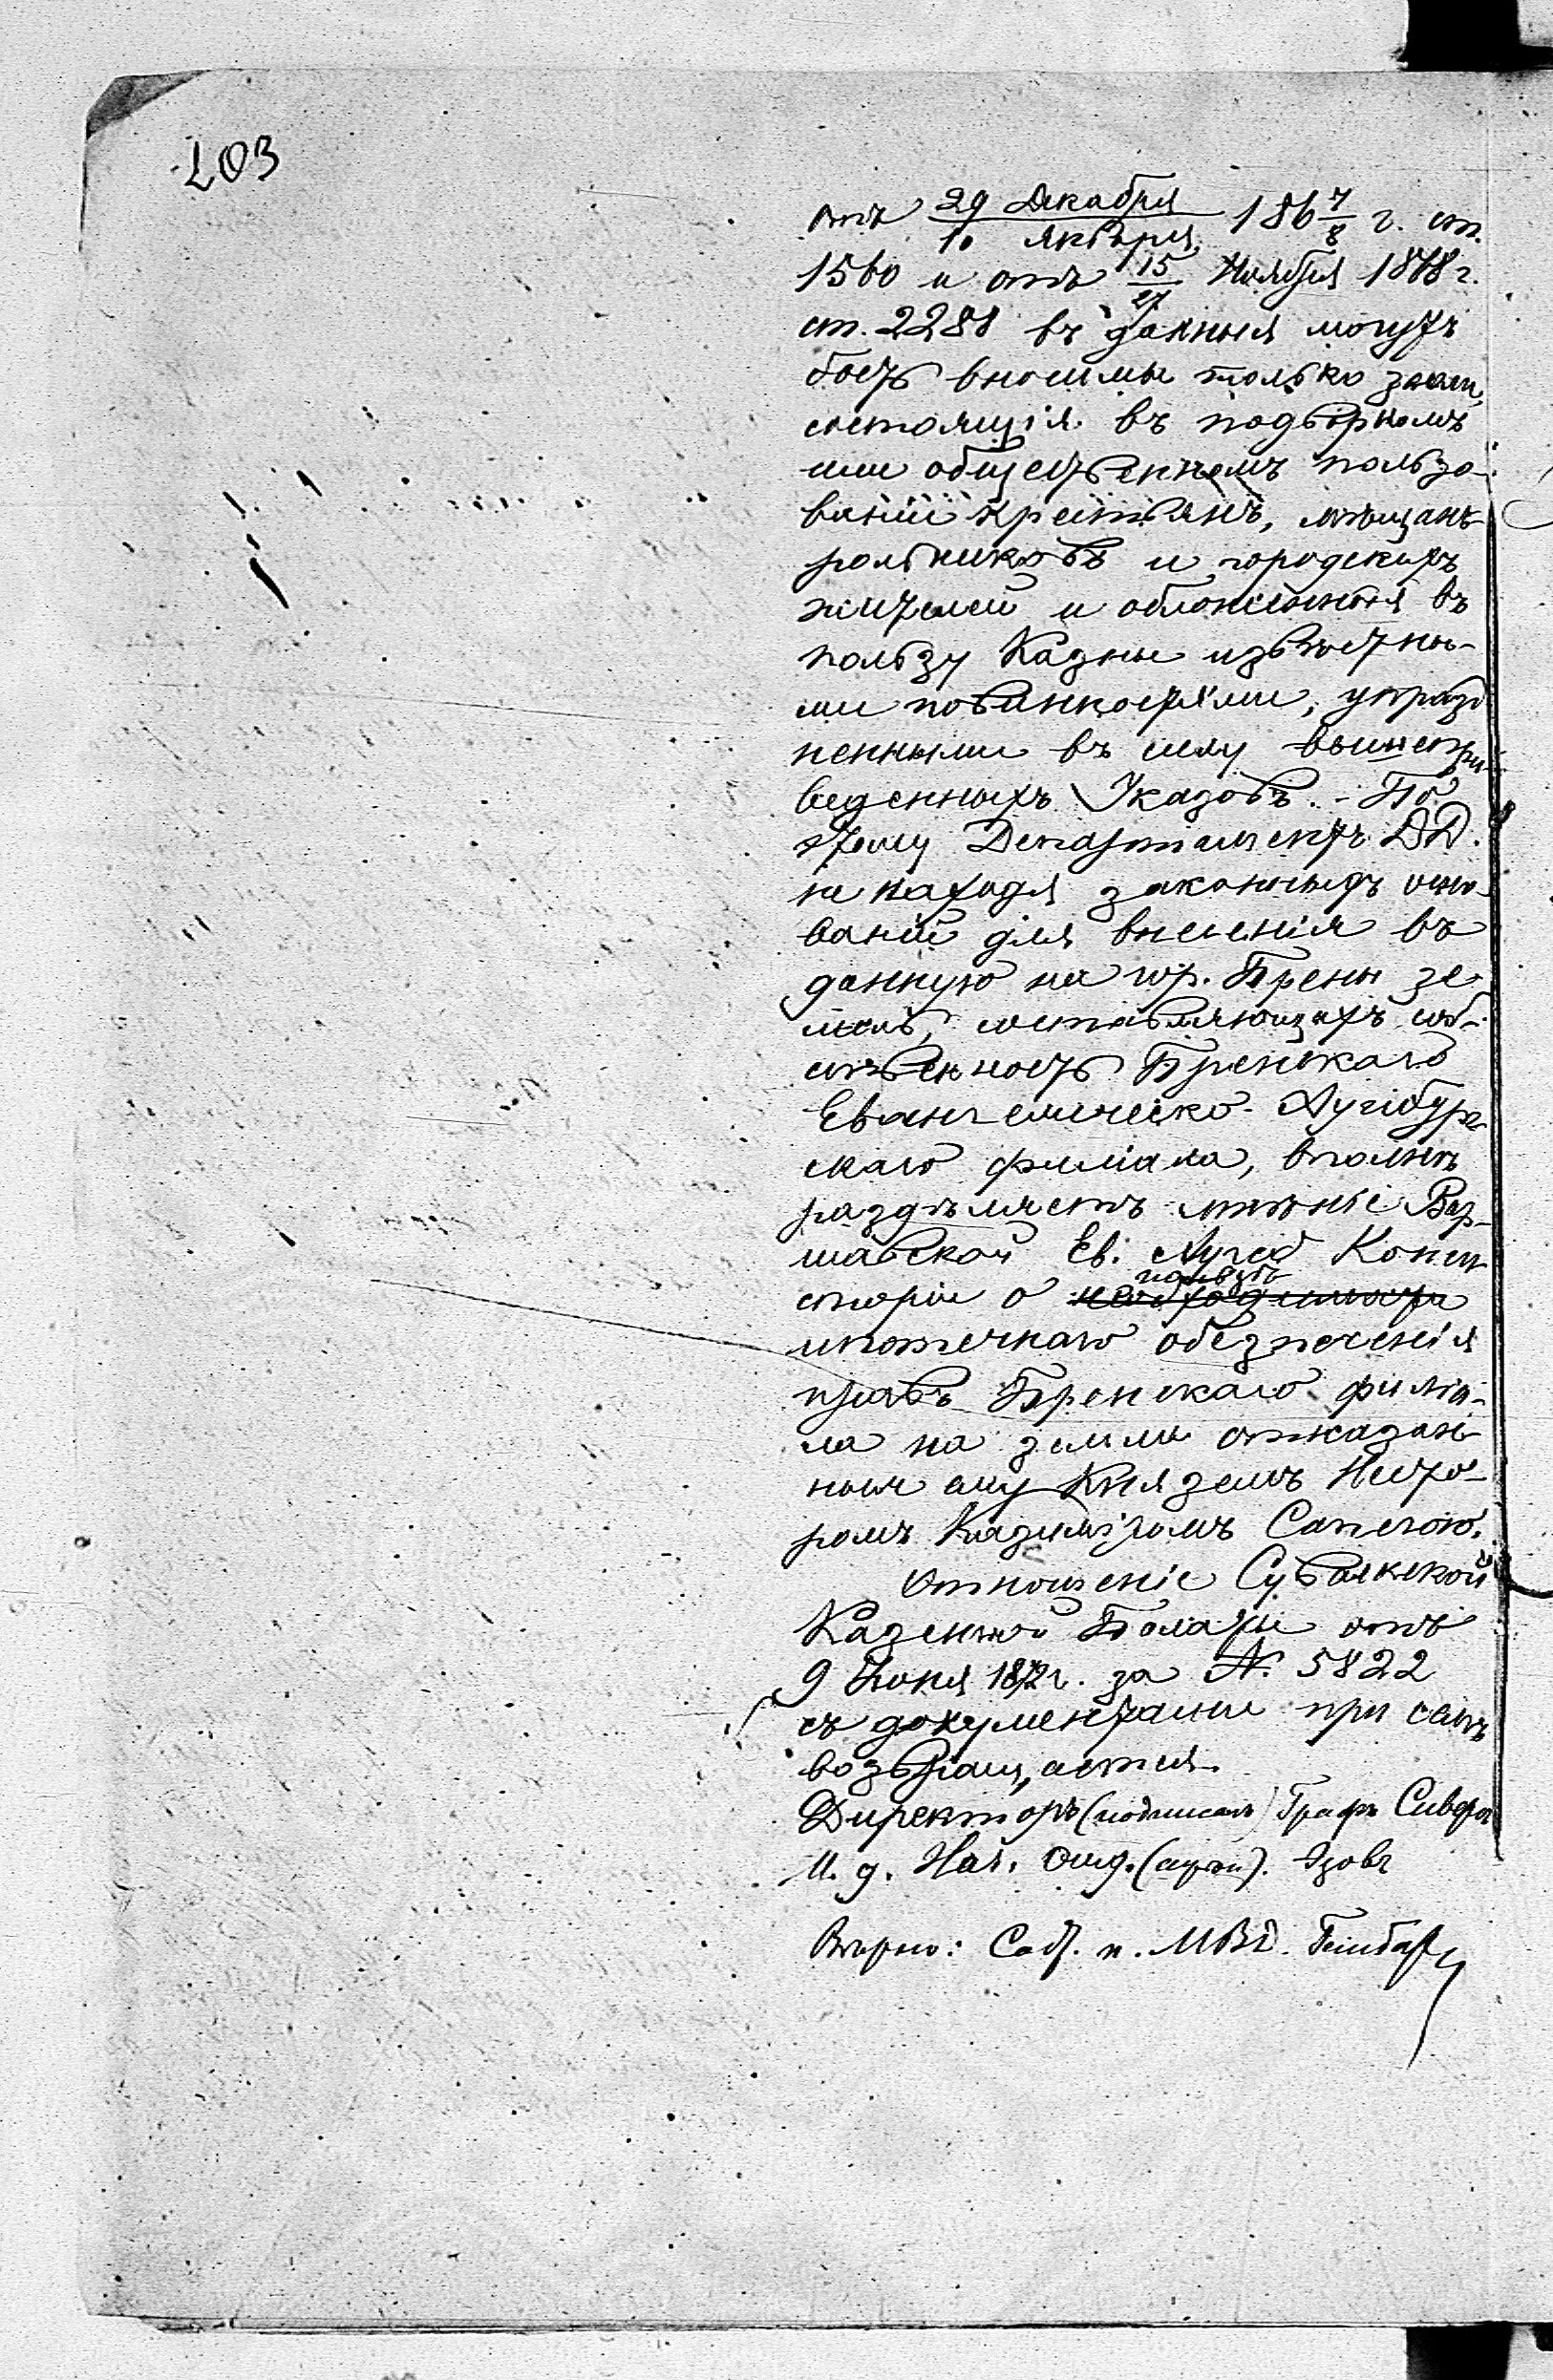 203
отъ 29 Декабря / 10 Января 186 7/8 г. ст.
1560 и отъ 15/27 Ноября 1868 г.
ст. 2288 въ данныя могутъ
быть вносимы только земли,
состоящія въ подворномъ
или общественномъ пользо-
ваніи крестьянъ, мѣщанъ
рольниковъ и городскихъ
жителей и обложенныя въ
пользу Казны извѣстны-
ми повинностями, упразд
ненными въ силу вышепри-
веденныхъ Указовъ. - По
этому Департаментъ Д.Д.
не находя законныхъ осно-
ваній для внесенія въ
данную на гор. Прены зе-
мель, составляющихъ соб-
ственность Пренскаго
Евангелическо-Аугсбург-
скаго филіала, вполнѣ
раздѣляетъ мнѣніе Вар-
шавской Ев. Аугсб Консис
торіи о необходимости
пользѣ
ипотечнаго обезпеченія
правъ Пренскаго филіа-
ла на земли отказан-
ныя ему Княземъ Несто-
ромъ Казиміромъ Сапегою.
Отношеніе Сувалкской
Казенной Палаты отъ
9 Іюня 1872 г. за №. 5822
съ документами при семъ
возвращается.
Директоръ (подписалъ) Графъ Сиверсъ
И. д. Нач. Отд. (скрѣп). Изовъ
Вѣрно: Соб. п. МВД.